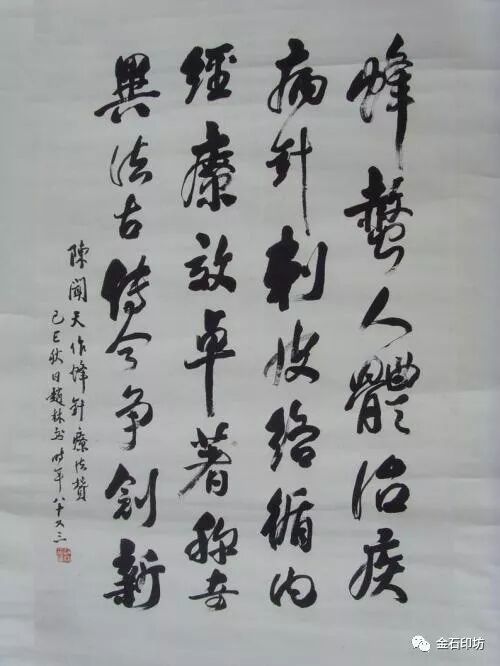 蜂螫人體治疾
病針刺皮络循内
經療效卓著称奇
異法古傳今争創新
陳聞天作蜂針療法贊
己巳秋日趙林书时年八十又三
金石印坊